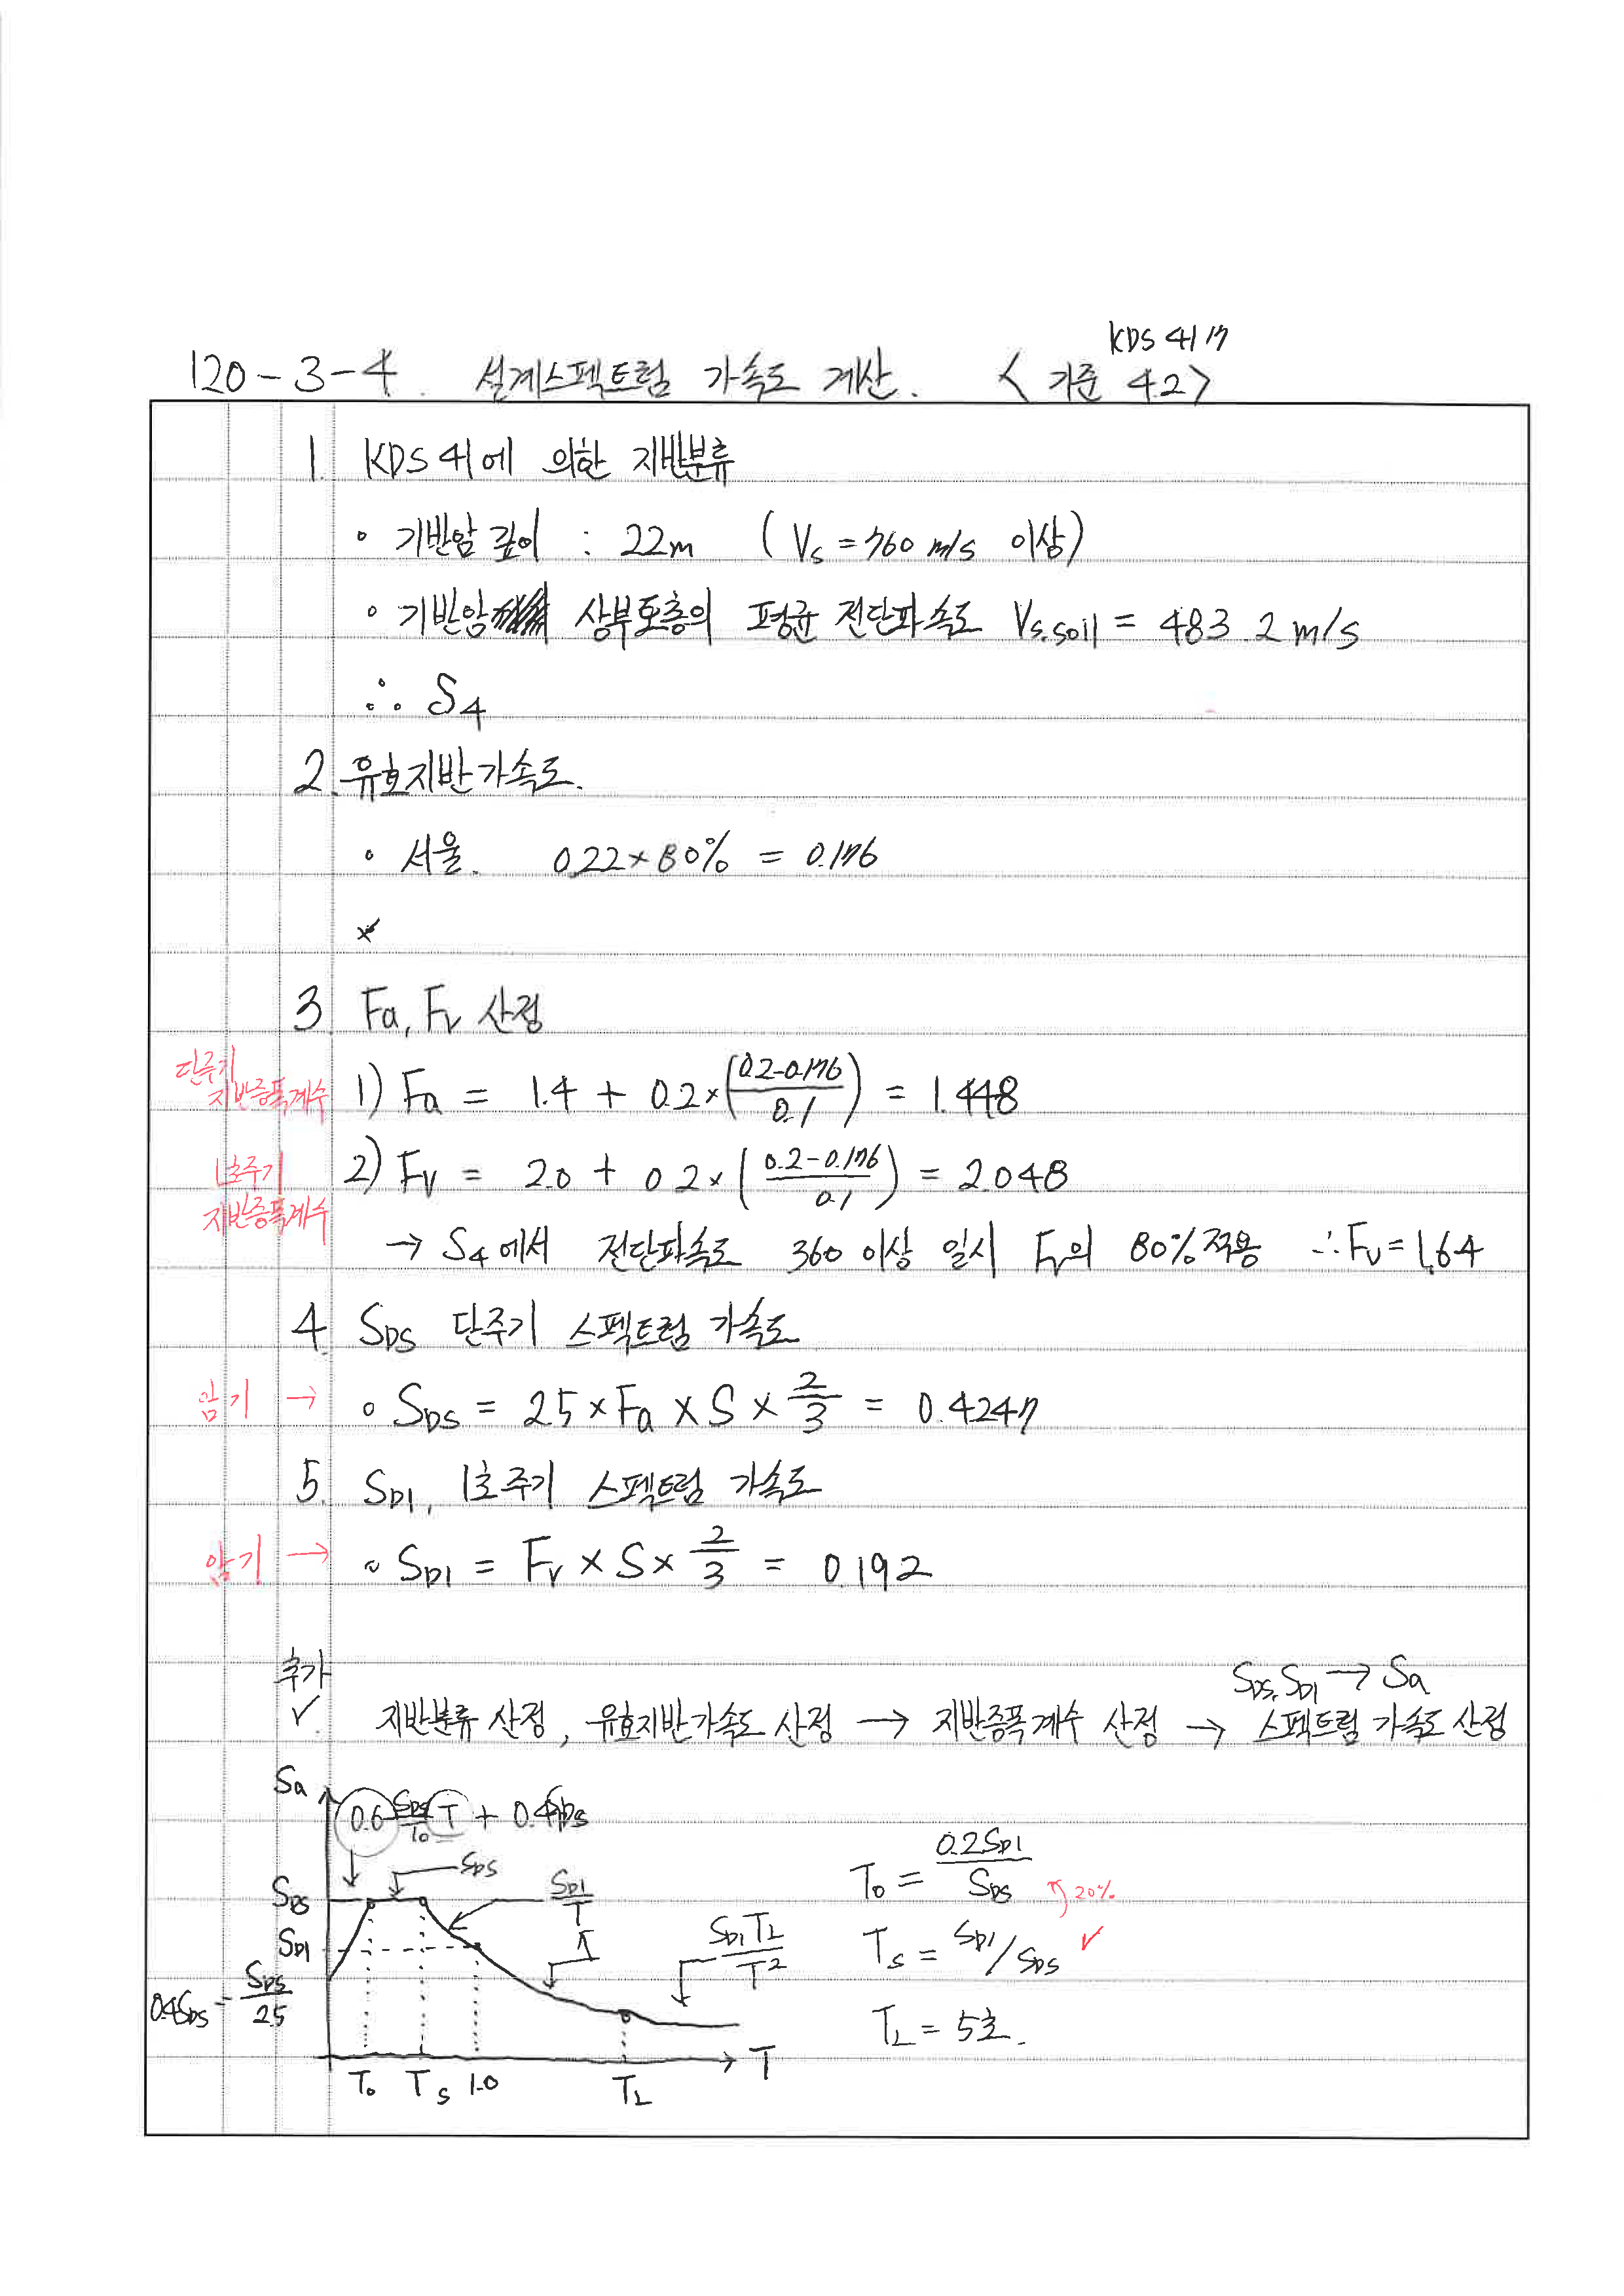 KDS 41 17
120-3-4. 설계스펙트럼 가속도 계산. < 기준 42>
1. KDS 41에 의한 지반분류
◦ 기반암 깊이 : 22m (Vs = 760 m/s 이상)
◦ 기반암 상부토층의 평균 전단파속도 Vs,soil = 483.2 m/s
∴ S4
2. 유효지반가속도.
◦ 서울. 0.22×80% = 0.176
3. Fa, Fv 산정
단주기 지반증폭계수
1) Fa = 1.4 + 0.2×((0.2-0.176)/0.1) = 1.448
1초주기 지반증폭계수
2) Fv = 2.0 + 0.2×((0.2-0.176)/0.1) = 2.048
→ S4에서 전단파속도 360 이상 일시 Fv의 80%적용 ∴Fv=1.64
4. SDS 단주기 스펙트럼 가속도
암기 → ◦ SDS = 2.5×Fa×S×2/3 = 0.4247
5. SD1, 1초주기 스펙트럼 가속도
암기 → ◦ SD1 = Fv×S×2/3 = 0.192
추가 ✓
SDS, SD1 → Sa
지반분류 산정, 유효지반가속도 산정 → 지반증폭계수 산정 → 스펙트럼 가속도 산정
Sa
0.6 SDS/To T + 0.4SDS
SDS
SDS
SD1/T
SD1
SD1TL/T²
0.4SDS = SDS/2.5
To Ts 1.0 TL T
To = 0.2SD1/SDS 20%
Ts = SD1/SDS ✓
TL = 5초.